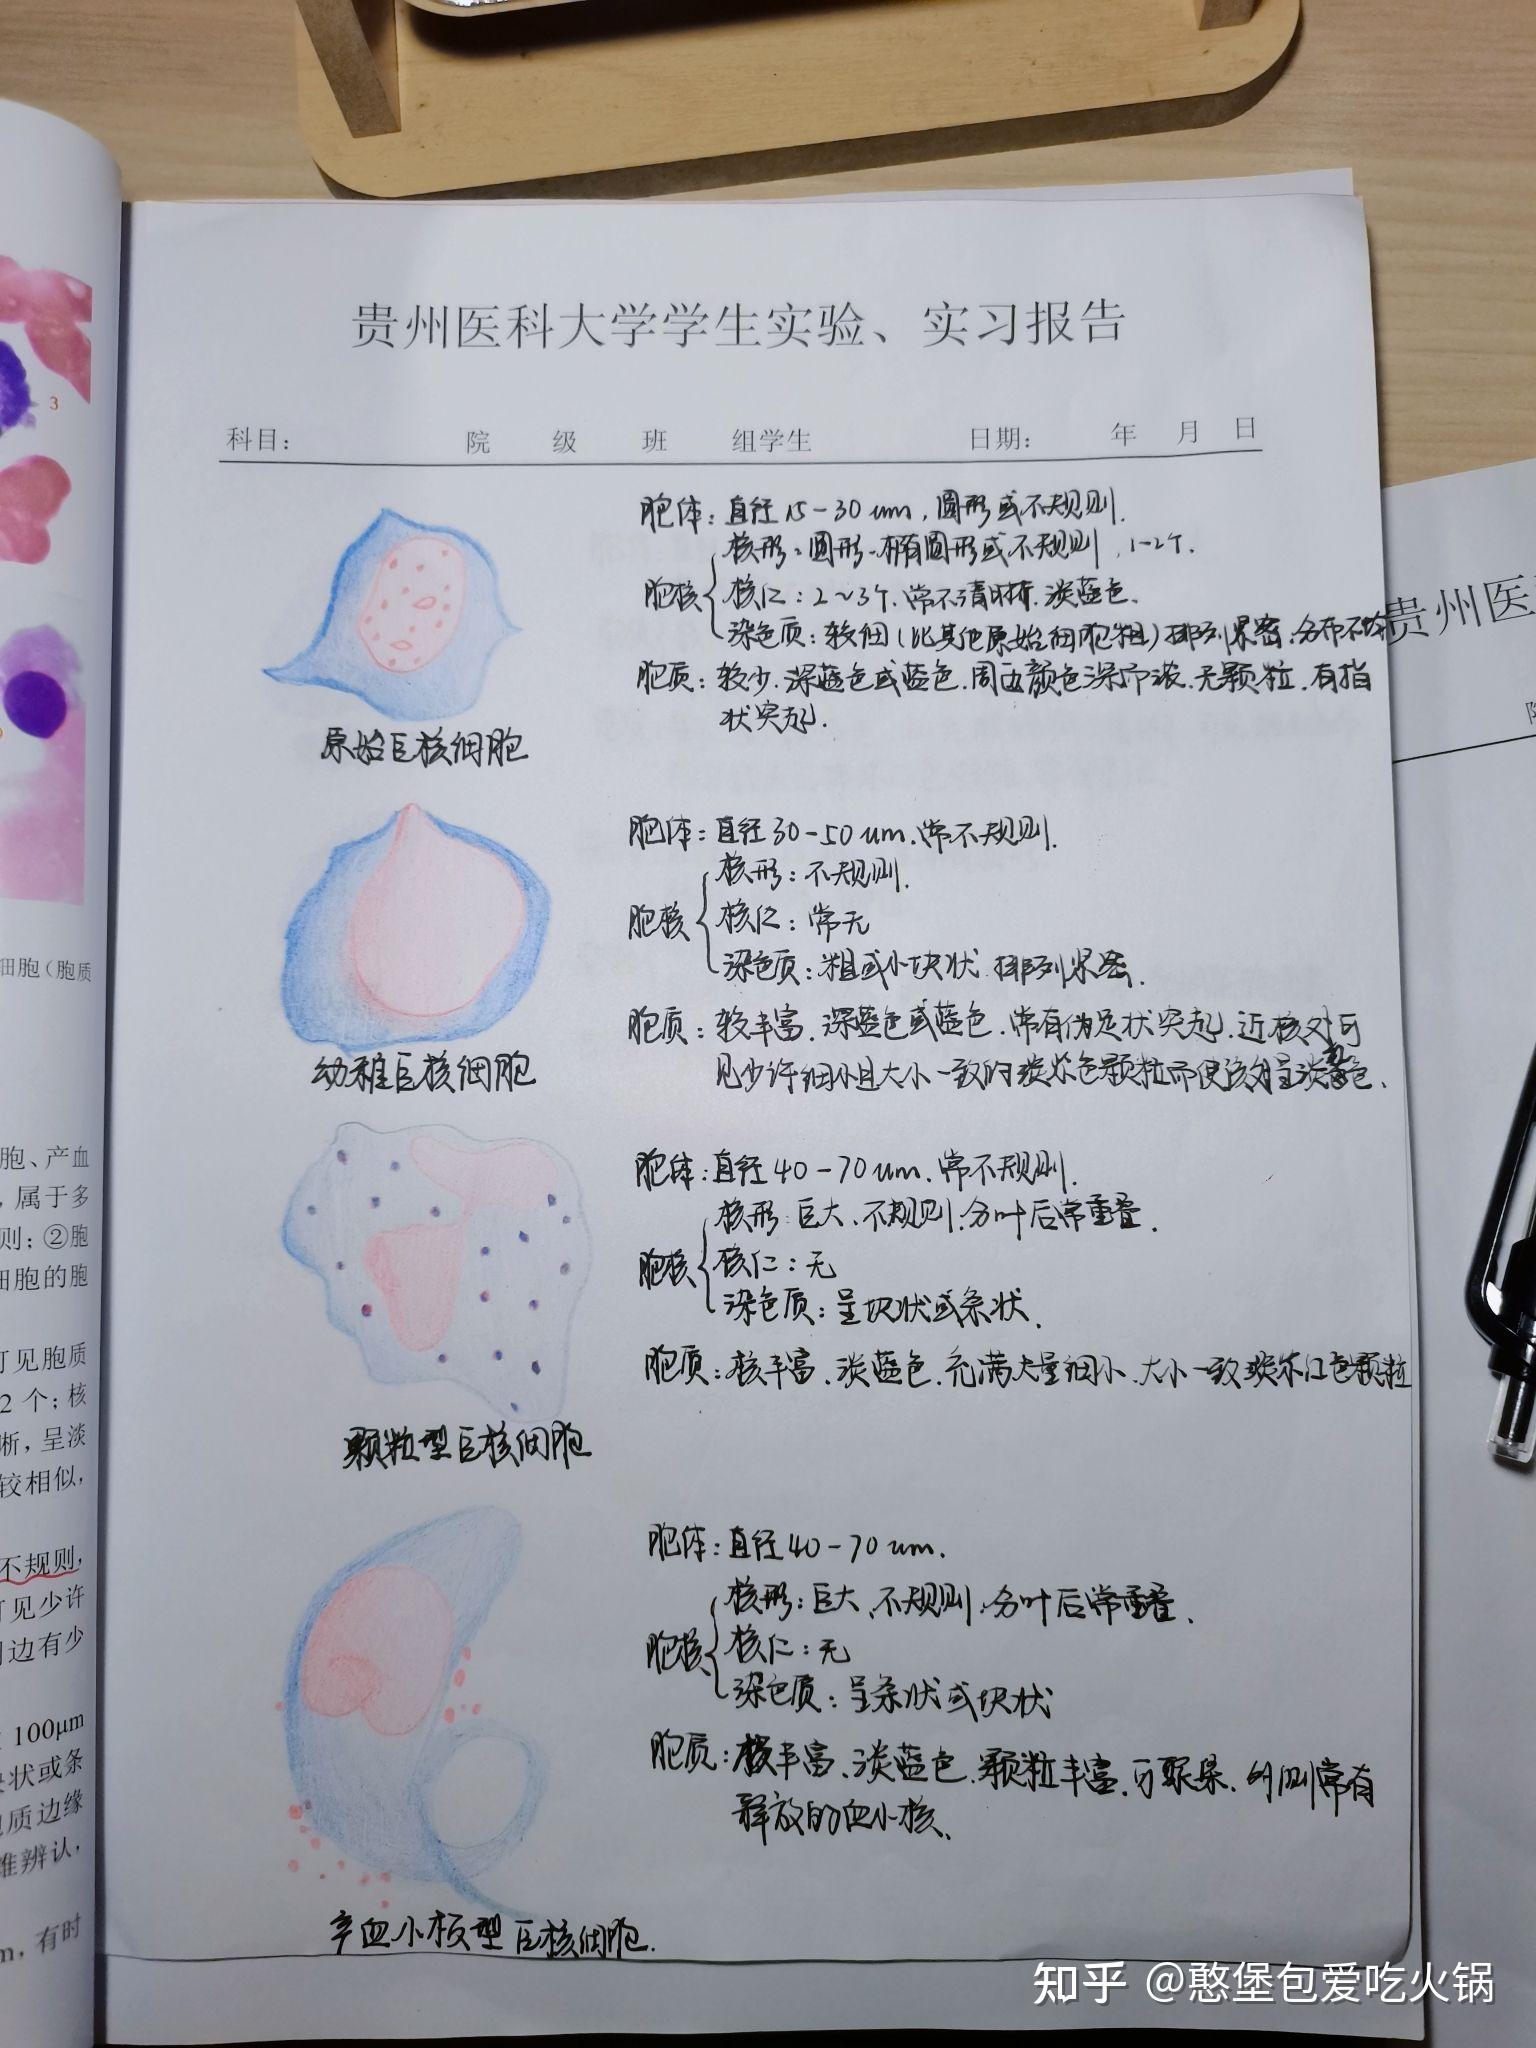 贵州医科大学学生实验、实习报告
科目： 院 级 班 组学生 日期： 年 月 日
胞体：直径15-30um，圆形或不规则.
核形：圆形、椭圆形或不规则，1-2个.
胞核
核仁：2~3个.常不清晰.淡蓝色.
染色质：较细（比其他原始细胞粗）排列紧密.分布不均
胞质：较少.深蓝色或蓝色.周边颜色深而浓.无颗粒.有指
状突起.
原始巨核细胞
胞体：直径30-50um.常不规则.
核形：不规则.
胞核
核仁：常无
染色质：粗或小块状.排列紧密.
胞质：较丰富.深蓝色或蓝色.常有伪足状突起.近核处可
见少许细小且大小一致的淡紫色颗粒而使该处呈淡色.
幼稚巨核细胞
胞体：直径40-70um.常不规则.
核形：巨大、不规则.分叶后常重叠.
胞核
核仁：无
染色质：呈块状或条状.
胞质：核丰富.淡蓝色.充满大量细小、大小一致淡紫红色颗粒
颗粒型巨核细胞
胞体：直径40-70um.
核形：巨大、不规则.分叶后常重叠.
胞核
核仁：无
染色质：呈条状或块状
胞质：核丰富、淡蓝色.颗粒丰富.可聚集.外侧常有
释放的血小板.
产血小板型巨核细胞.
贵州医
院
3
细胞（胞质
胞、产血
，属于多
则；②胞
细胞的胞
可见胞质
2个；核
晰，呈淡
较相似，
不规则，
可见少许
周边有少
100μm
块状或条
胞质边缘
难辨认，
m，有时
知乎 @憨堡包爱吃火锅